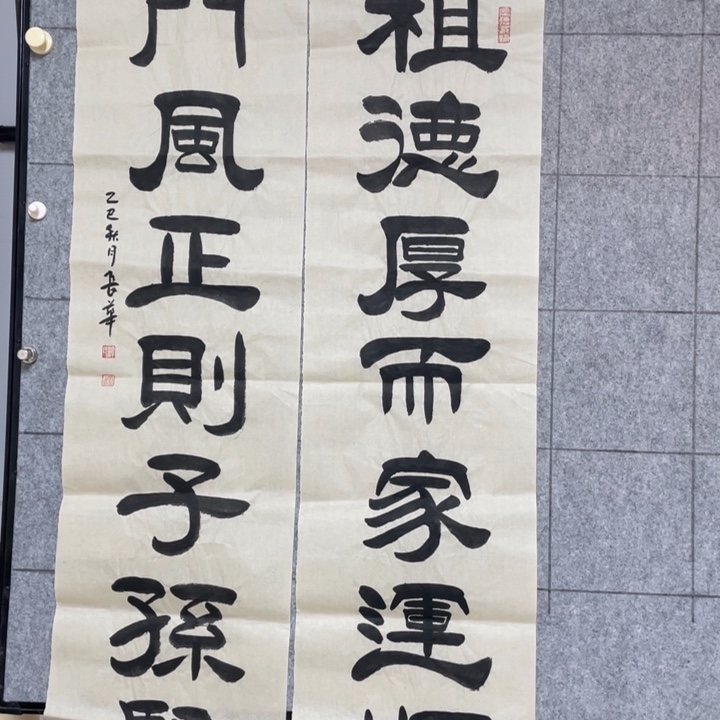 祖德厚而家運
門風正則子孫
乙巳秋月長華